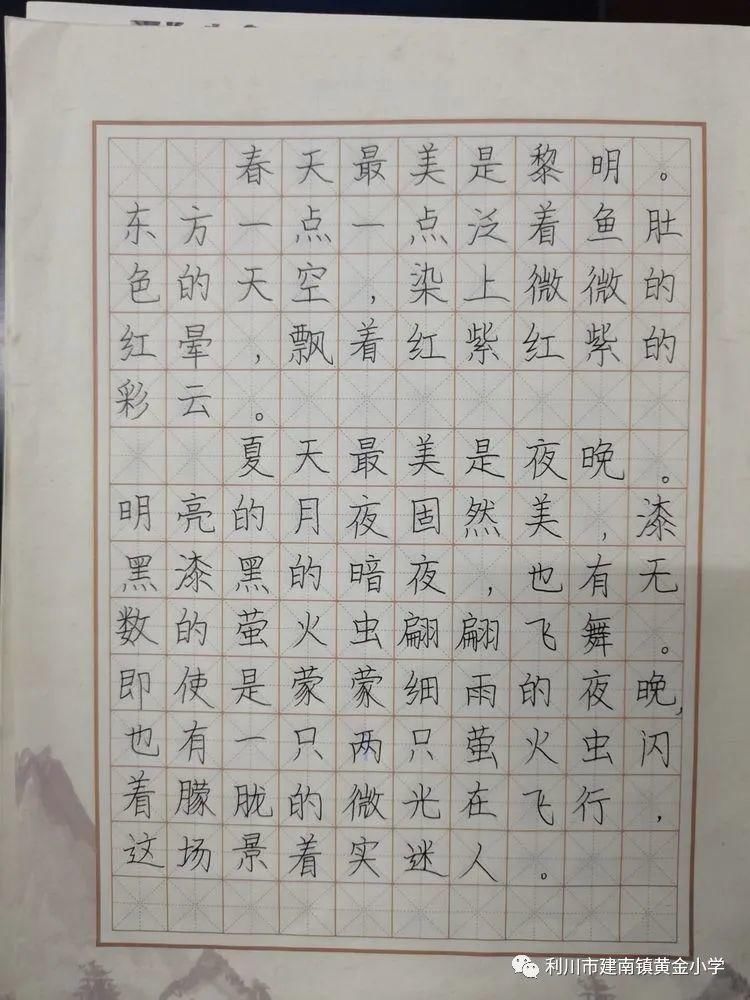 春天最美是黎明。
东方一点一点泛着鱼肚
色的天空，染上微微的
红晕，飘着红紫红紫的
彩云。
夏天最美是夜晚。
明亮的月夜固然美，漆
黑漆黑的暗夜，也有无
数的萤火虫翩翩飞舞。
即使是蒙蒙细雨的夜晚，
也有一只两只萤火虫闪
着朦胧的微光在飞行，
这场景着实迷人。
利川市建南镇黄金小学